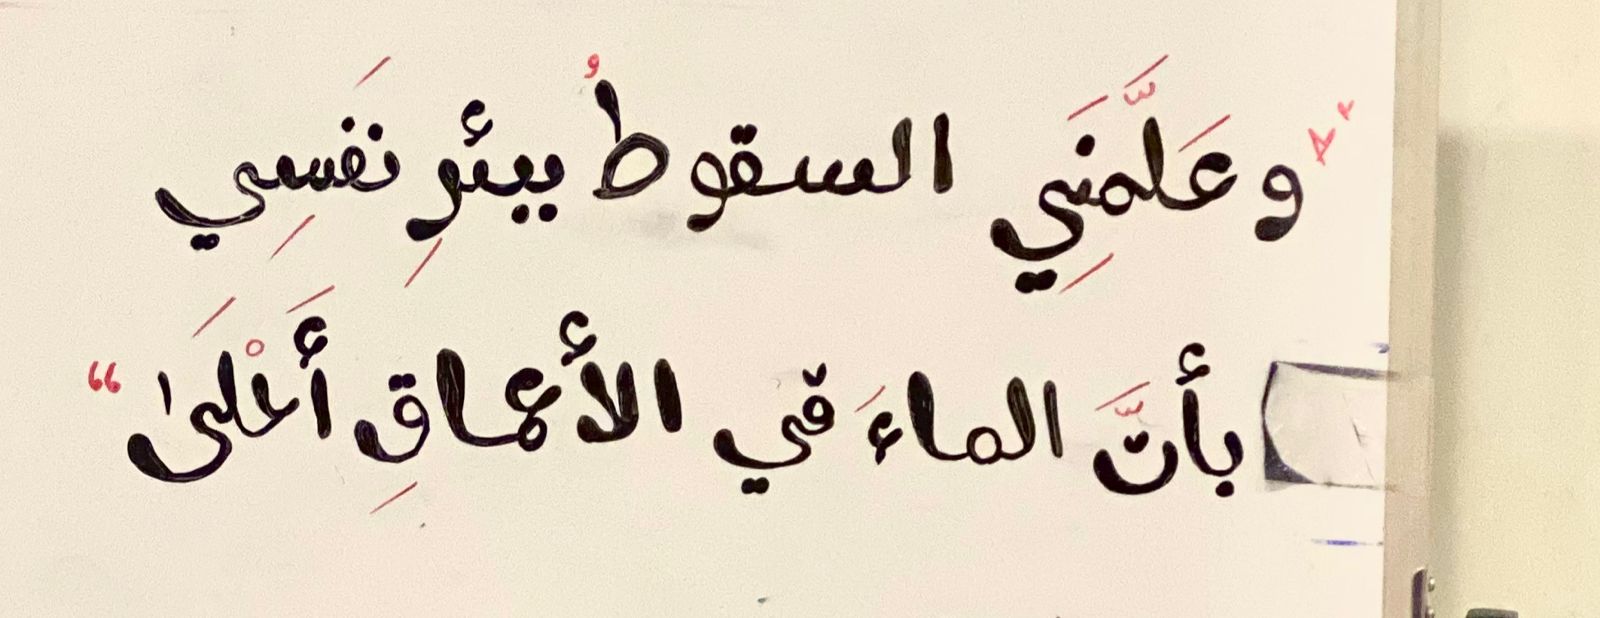 "وعَلَّمَنِي السقوطُ ببئرِ نَفسِي
بأنَّ الماءَ في الأعماقِ أَحْلَىٰ"